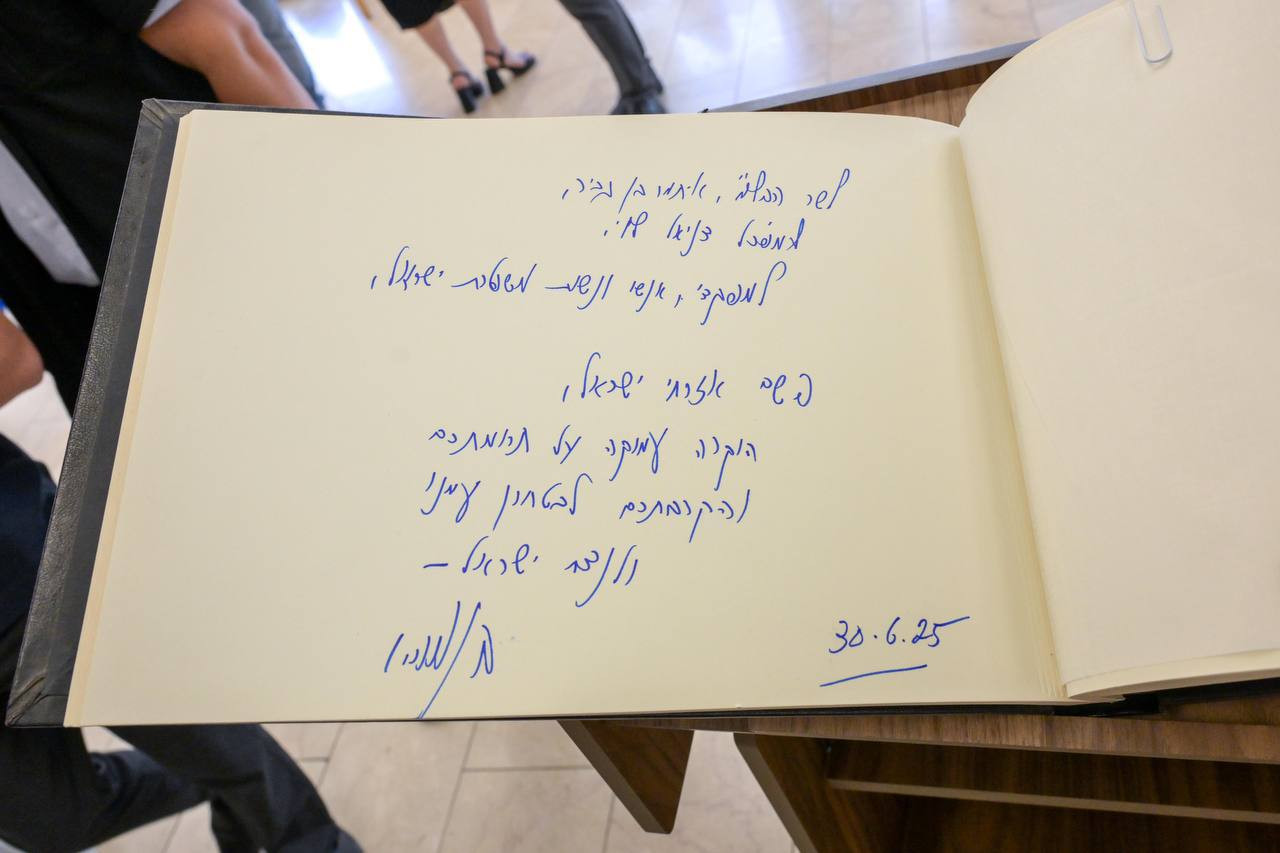 לשר הבטל״מ, איתמר בן גביר,
למפכ״ל דניאל לוי,
למפקדי, אנשי ונשות משטרת ישראל,
בשם אזרחי ישראל,
הוקרה עמוקה על תרומתכם
והקרבתכם לבטחון עמנו
ולנצח ישראל –
30.6.25